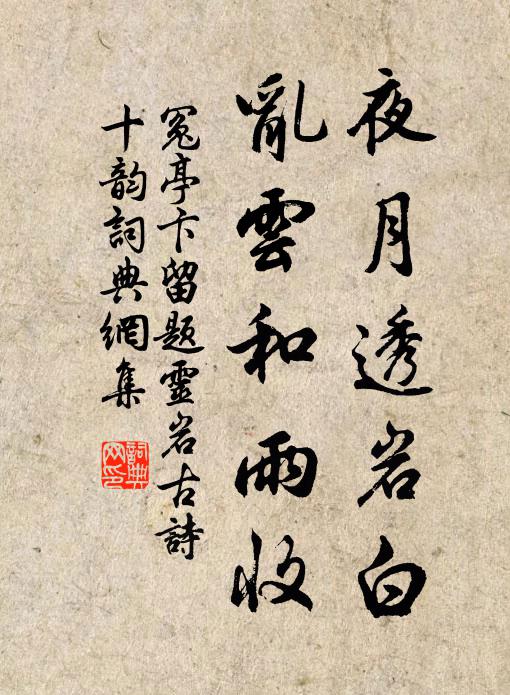 夜月透岩白
亂雲和雨收
冤亭卞留題靈岩古詩
十韵詞典網集
詞典網印